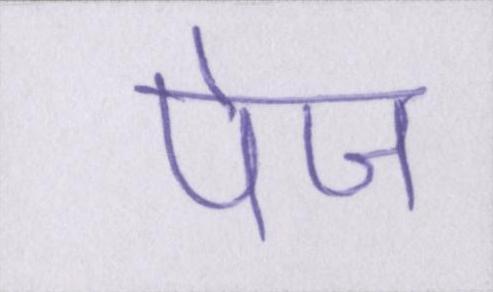 पेज